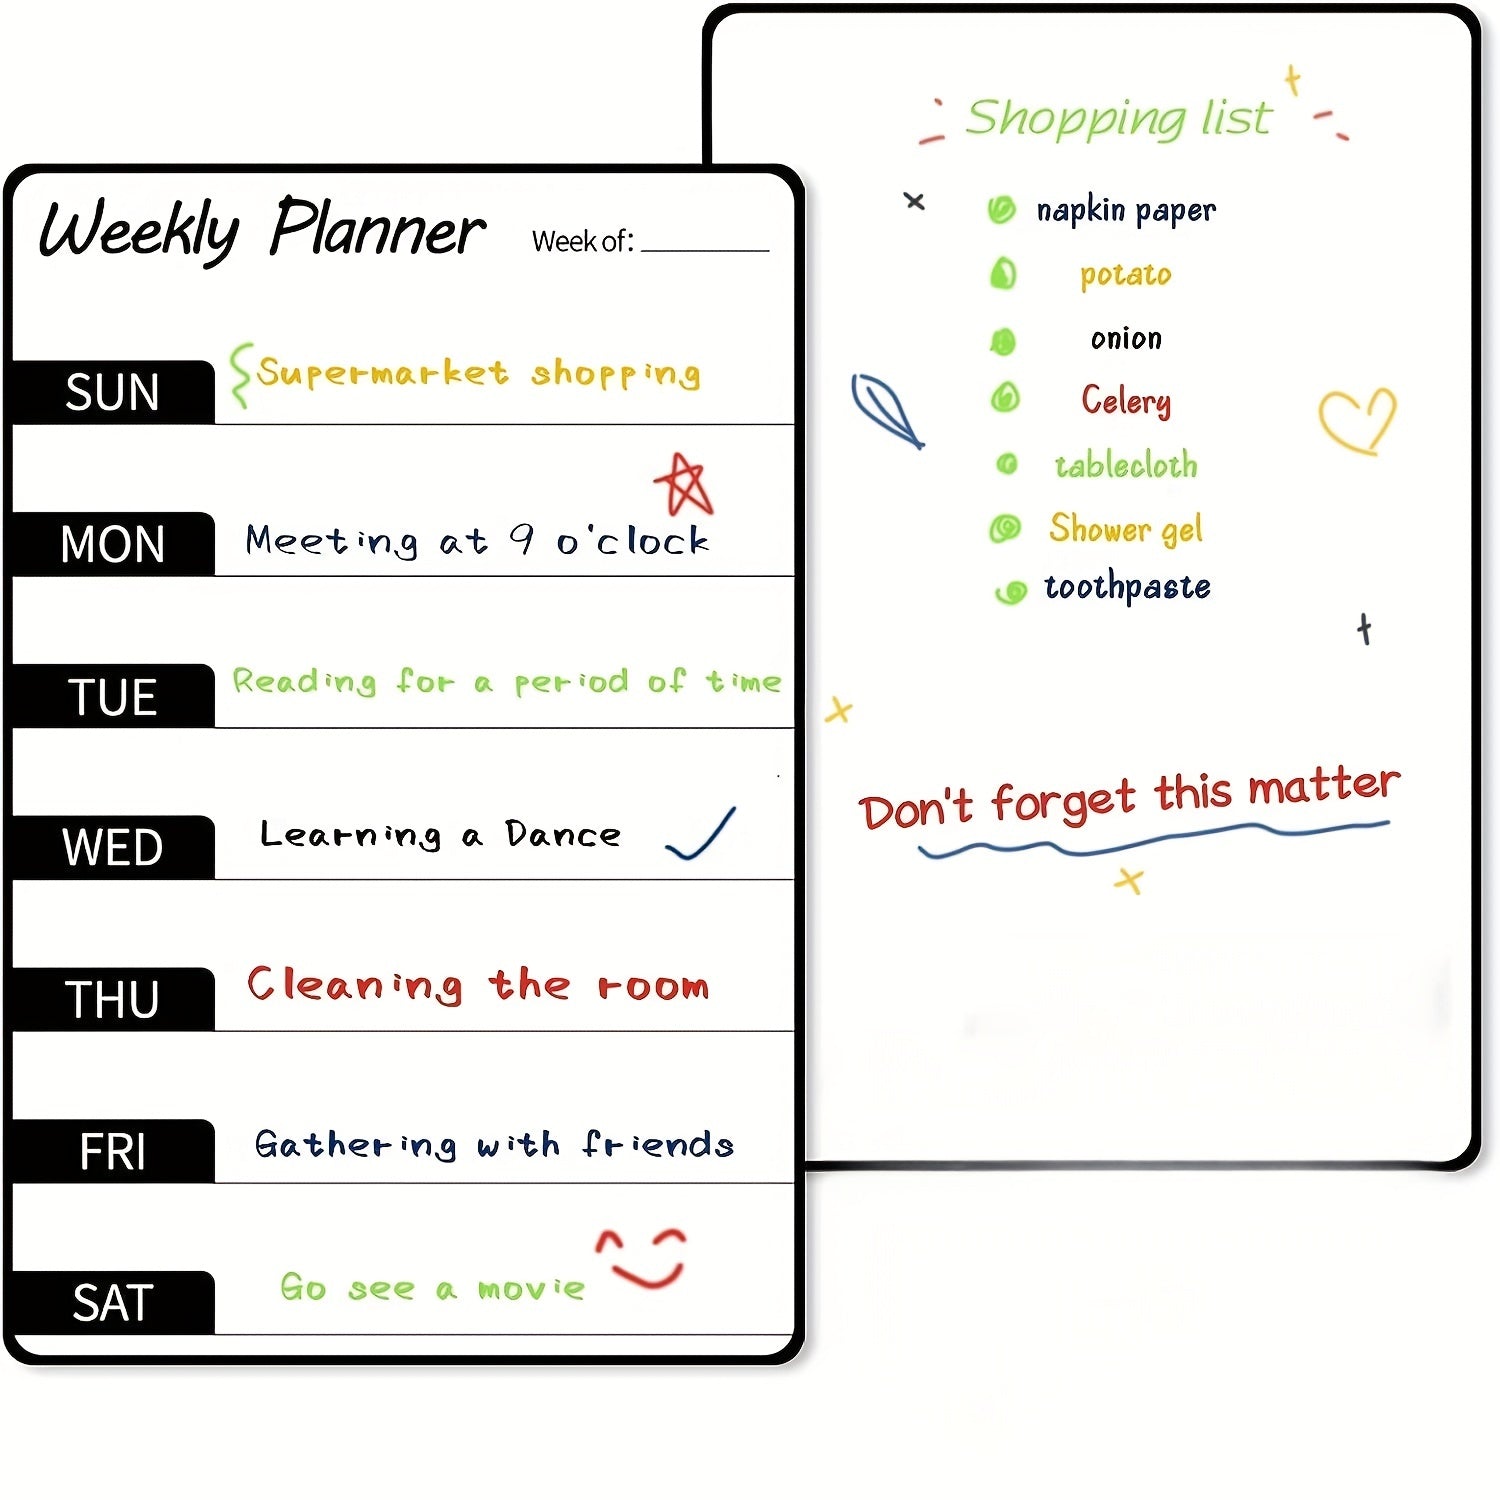 Weekly Planner
Week of:
SUN
Supermarket shopping
MON
Meeting at 9 o'clock
TUE
Reading for a period of time
WED
Learning a Dance
THU
Cleaning the room
FRI
Gathering with friends
SAT
Go see a movie
Shopping list
napkin paper
potato
onion
Celery
tablecloth
Shower gel
toothpaste
Don't forget this matter